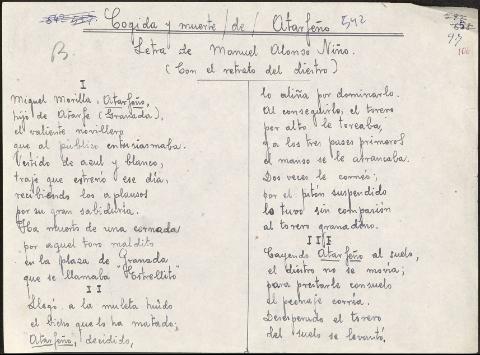 Cogida y muerte / de / Atarfeño 542
B.
Letra de Manuel Alonso Niño.
(Con el retrato del diestro)
97
106
I
Miguel Morilla, Atarfeño,
hijo de Atarfe (Granada),
el valiente novillero
que al público entusiasmaba.
Vestido de azul y blanco,
traje que estrenó ese día;
recibiendo los aplausos
por su gran sabiduría.
Ha muerto de una cornada
por aquel toro maldito
en la plaza de Granada
que se llamaba "Estrellito"
II
Llegó a la muleta huido
el bicho que lo ha matado;
"Atarfeño, decidido,
lo aliña por dominarlo.
Al conseguirlo, el torero
por alto le toreaba,
y a los tres pases primeros
el manso se le arrancaba.
Dos veces le corneó;
por el pitón suspendido
lo tuvo sin compasión
al torero granadino.
III
Cayendo Atarfeño al suelo,
el diestro no se movía;
para prestarle consuelo
el peonaje corría.
Desesperado el torero
del suelo se levantó,